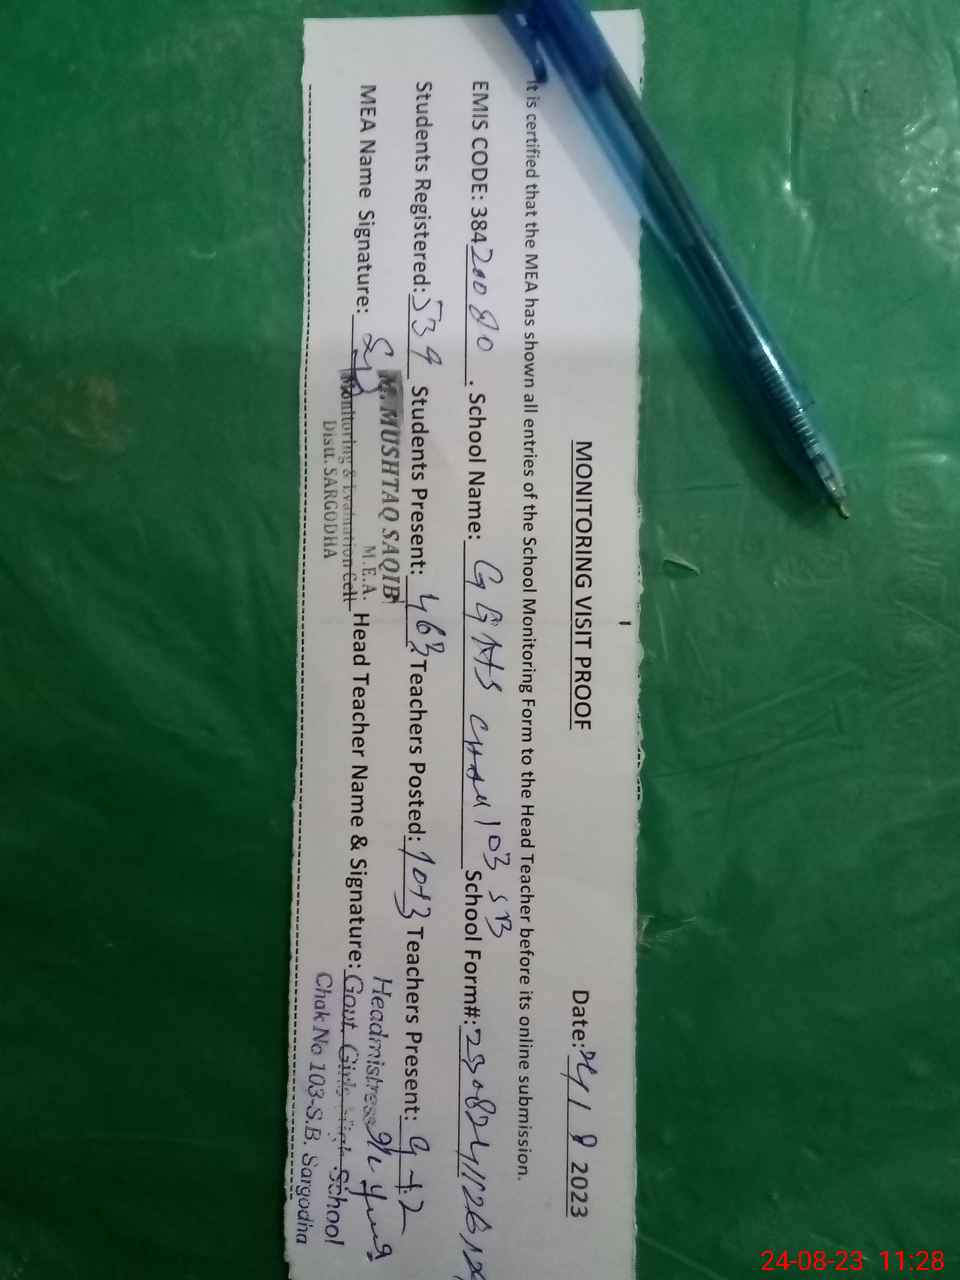 MONITORING VISIT PROOF
Date: 24/8 2023
It is certified that the MEA has shown all entries of the School Monitoring Form to the Head Teacher before its online submission.
EMIS CODE: 38420080. School Name: GGHS CHAK 103 SB School Form#:
Students Registered: 539 Students Present: 463 Teachers Posted: 10+3 Teachers Present: 9+2
M. MUSHTAQ SAQIB
M.E.A.
MEA Name Signature: Head Teacher Name & Signature:
Monitoring & Evaluation Cell
Distt. SARGODHA
Headmistress
Govt. Girls High School
Chak No 103-S.B. Sargodha
24-08-23 11:28